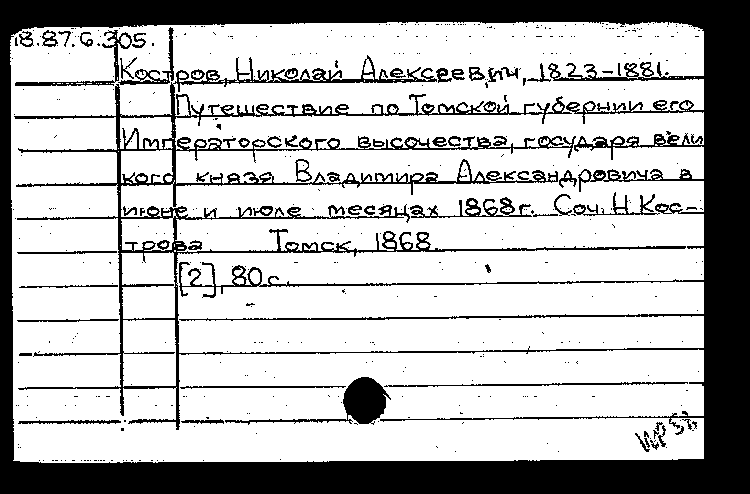 18.87.6.305.
Костров, Николай Алексеевич, 1823-1881.
Путешествие по Томской губернии его
Императорского высочества, государя вели
кого князя Владимира Александровича в
июне и июле месяцах 1868 г. Соч. Н. Кос-
трова. Томск, 1868.
[2], 80 с.